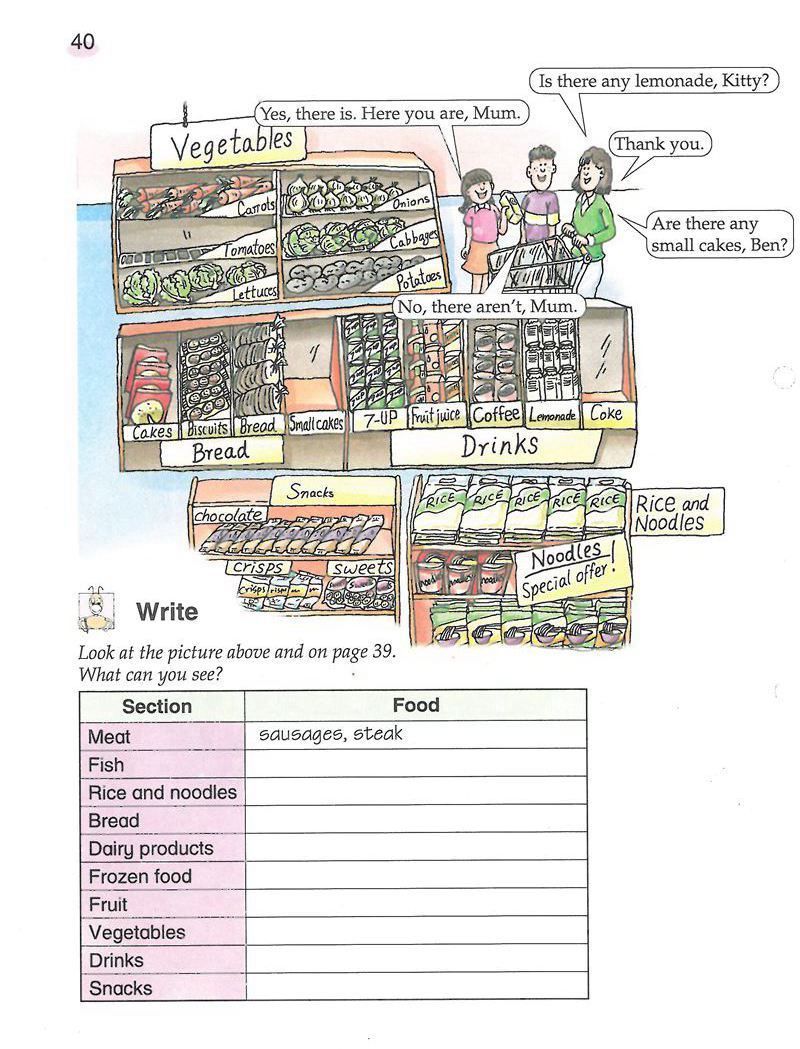 40
Is there any lemonade, Kitty?
Yes, there is. Here you are, Mum.
Thank you.
Are there any
small cakes, Ben?
No, there aren't, Mum.
Vegetables
Carrots
Onions
Tomatoes
Cabbages
Lettuces
Potatoes
Cakes
Biscuits
Bread
Small cakes
7-UP
Fruit juice
Coffee
Lemonade
Coke
Bread
Drinks
Snacks
chocolate
crisps
sweets
crisps
RICE RICE RICE RICE RICE
Rice and
Noodles
Noodles
Special offer!
noodles
Write
Look at the picture above and on page 39.
What can you see?
Section Food
Meat sausages, steak
Fish
Rice and noodles
Bread
Dairy products
Frozen food
Fruit
Vegetables
Drinks
Snacks